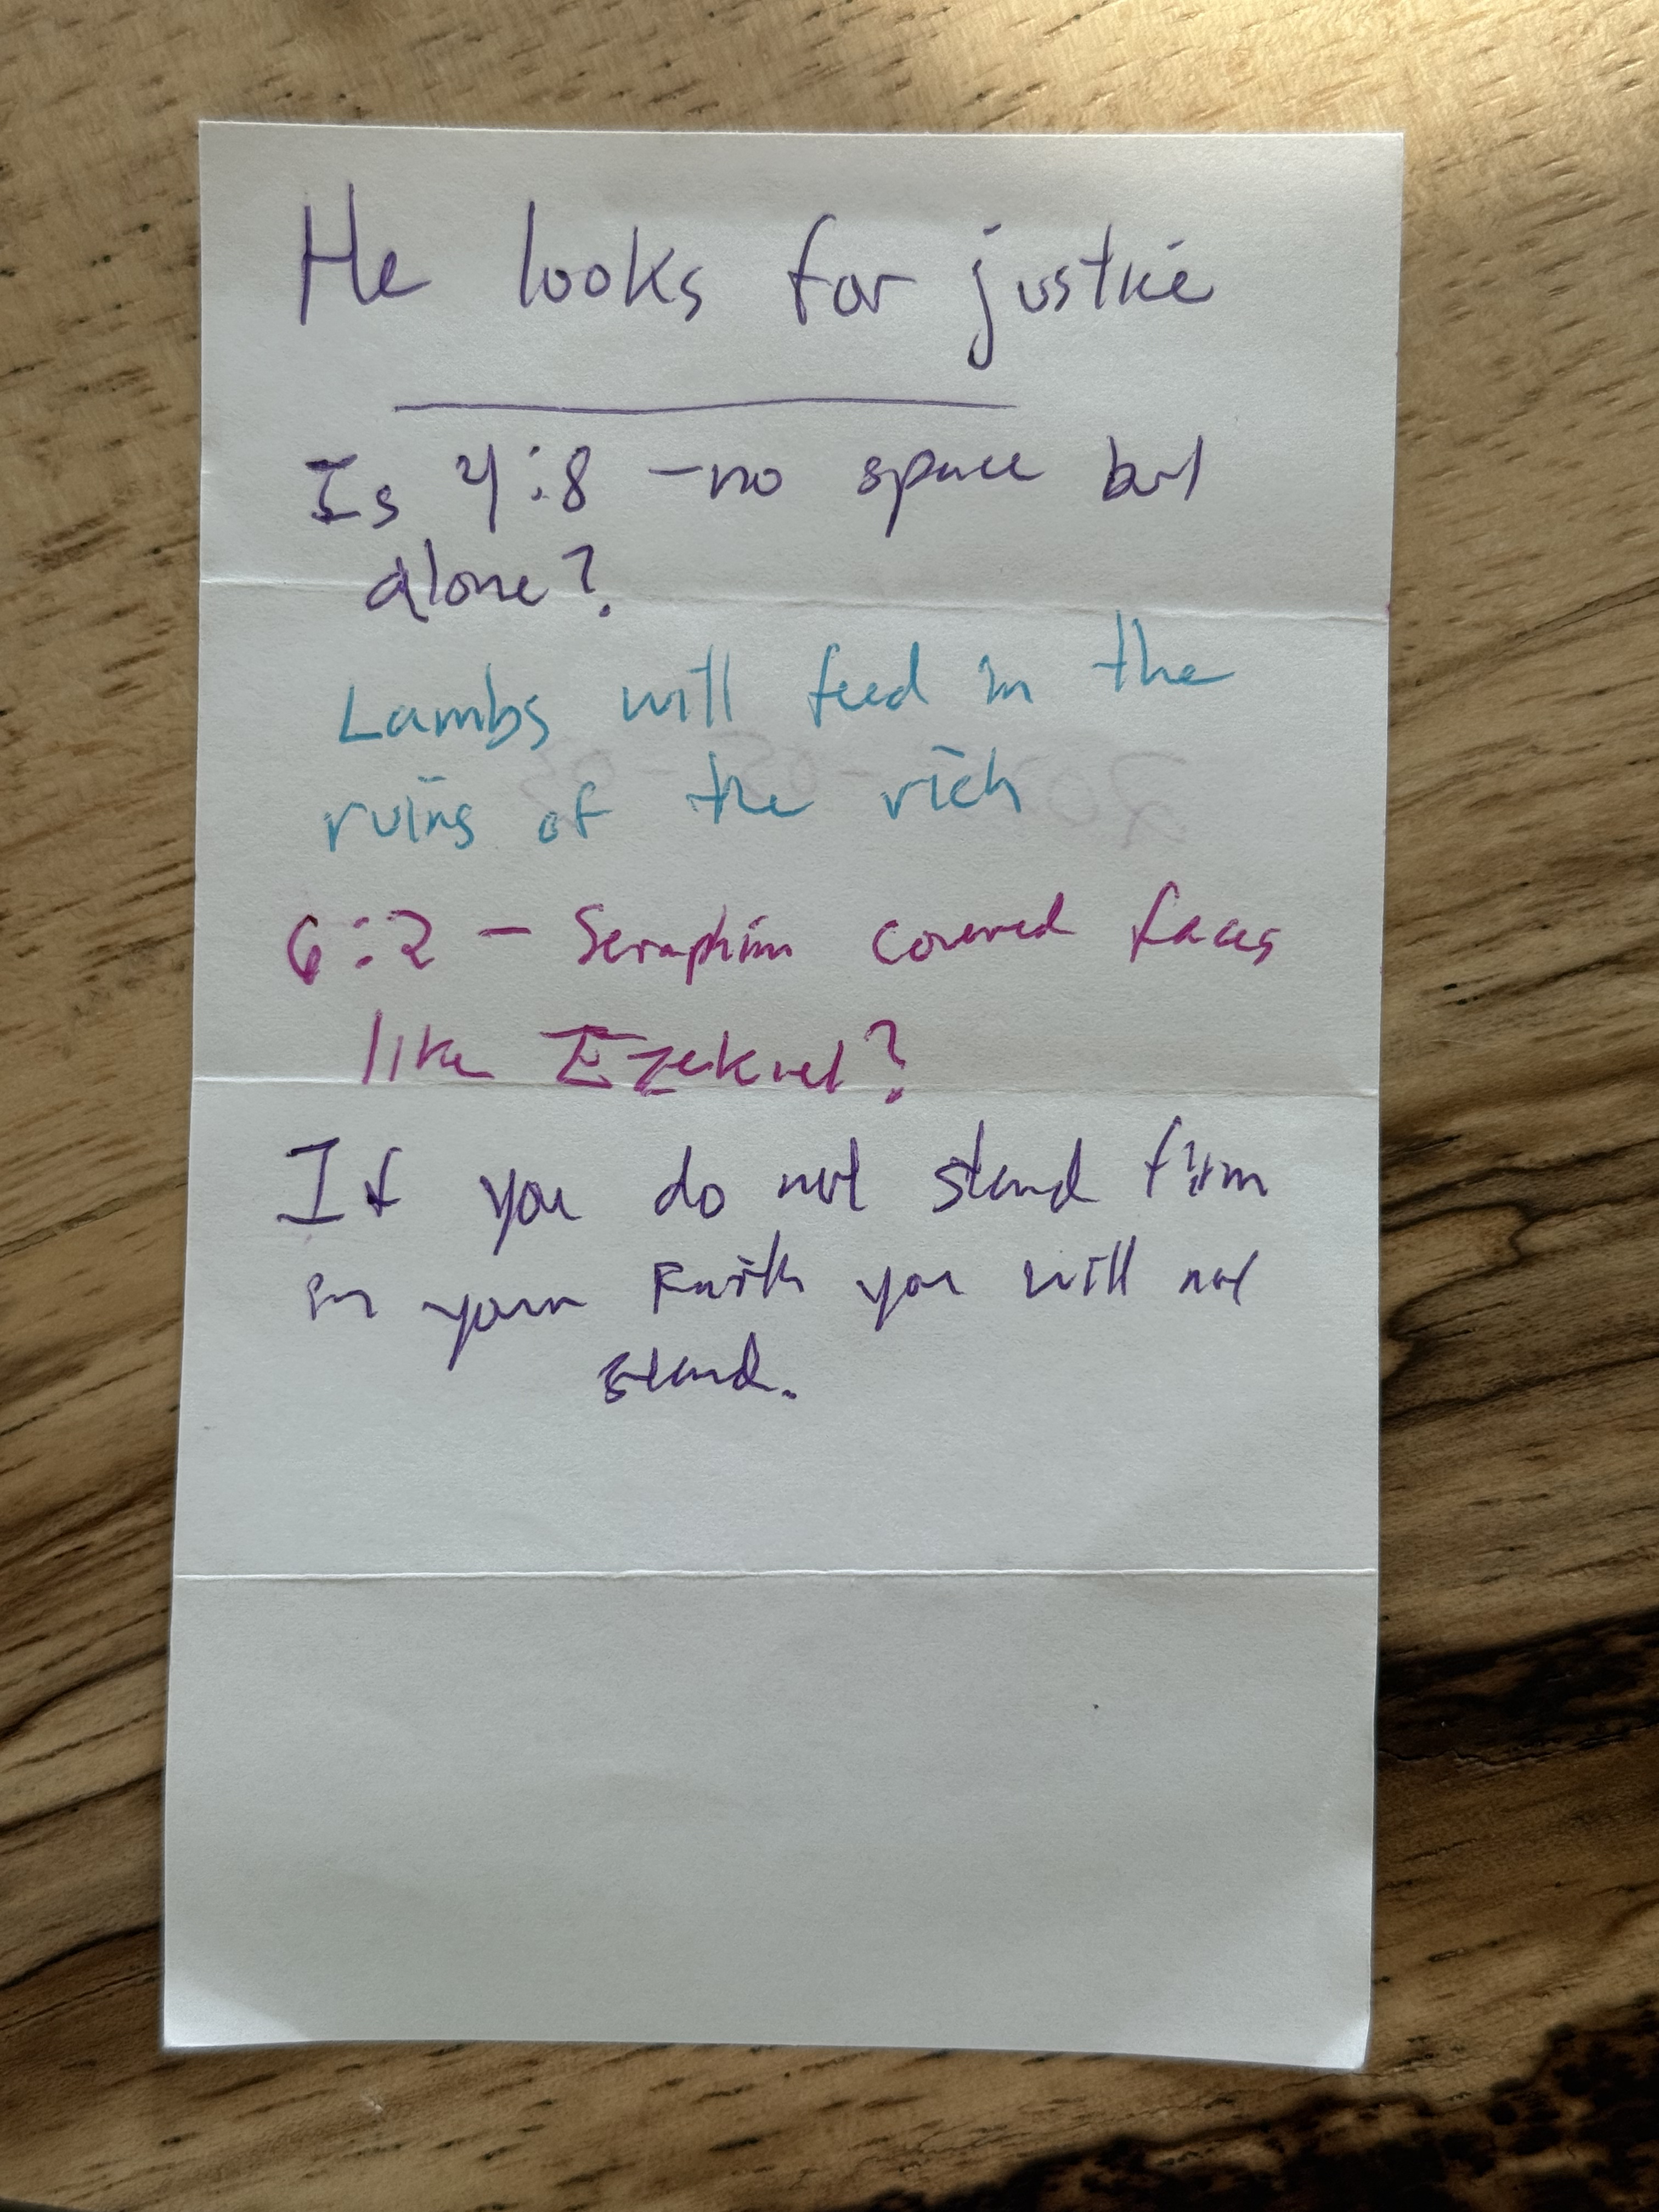 He looks for justice
Is 4:8 - no space but
alone?
Lambs will feed in the
ruins of the rich
6:2 - Seraphim covered faces
like Ezekiel?
If you do not stand firm
in your Faith you will not
stand.